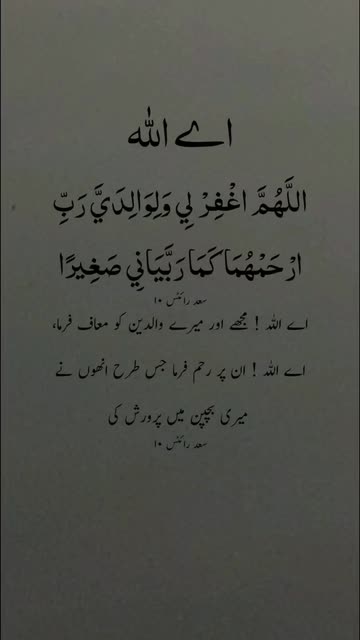 اے اللہ
اللَّهُمَّ اغْفِرْ لِي وَلِوَالِدَيَّ رَبِّ
ارْحَمْهُمَا كَمَا رَبَّيَانِي صَغِيرًا
سعد رائٹس ١٠
اے اللہ ! مجھے اور میرے والدین کو معاف فرما،
اے اللہ ! ان پر رحم فرما جس طرح انھوں نے
میری بچپن میں پرورش کی
سعد رائٹس ١٠